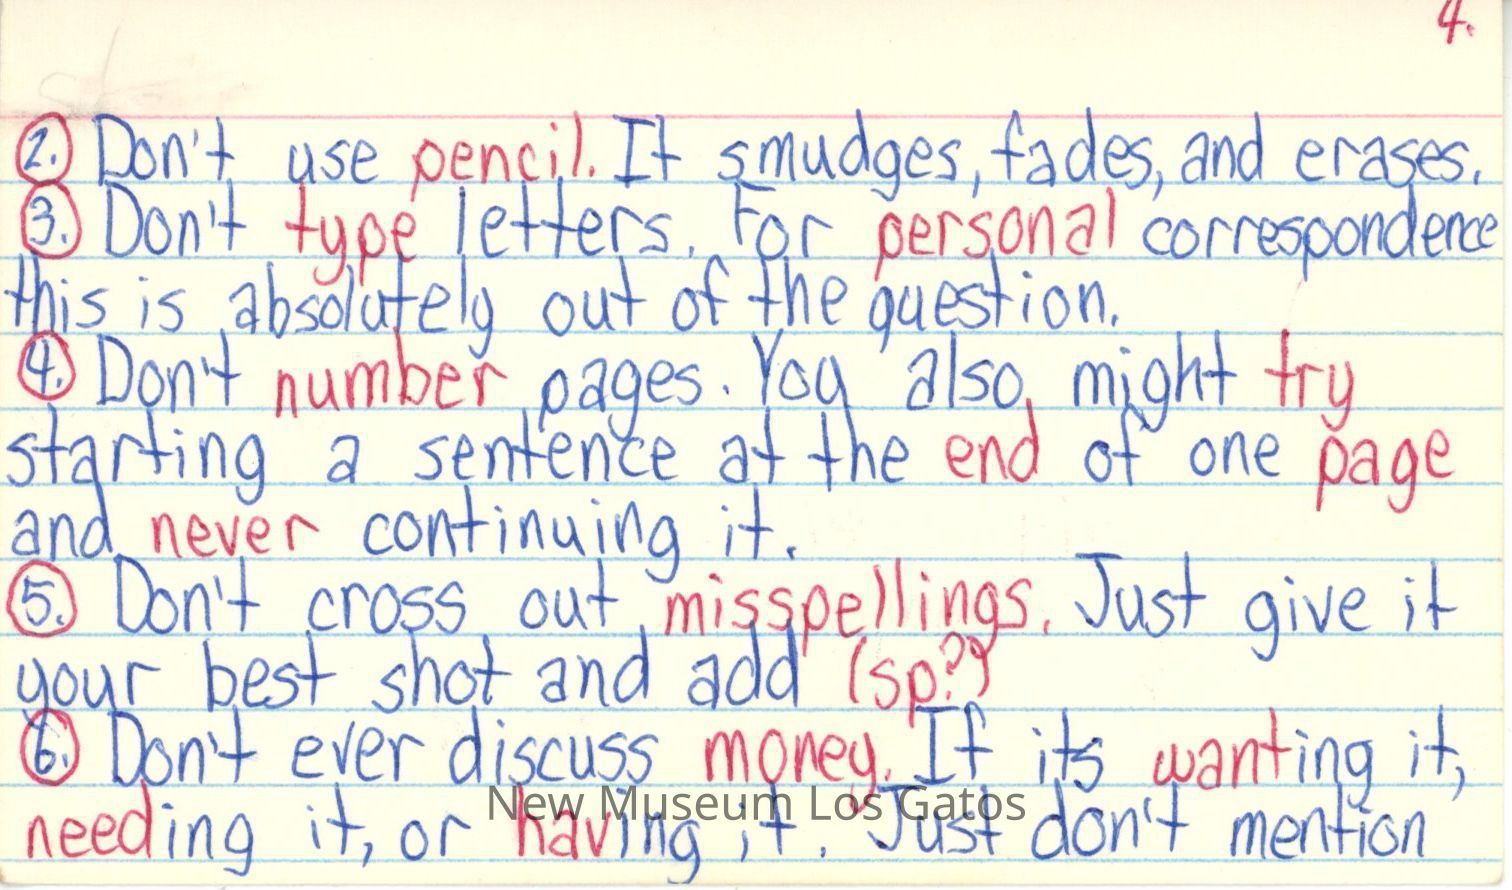 4.
2. Don't use pencil. It smudges, fades, and erases.
3. Don't type letters. For personal correspondence
this is absolutely out of the question.
4. Don't number pages. You also might try
starting a sentence at the end of one page
and never continuing it.
5. Don't cross out misspellings. Just give it
your best shot and add (sp?)
6. Don't ever discuss money. If its wanting it,
needing it, or having it. Just don't mention
New Museum Los Gatos